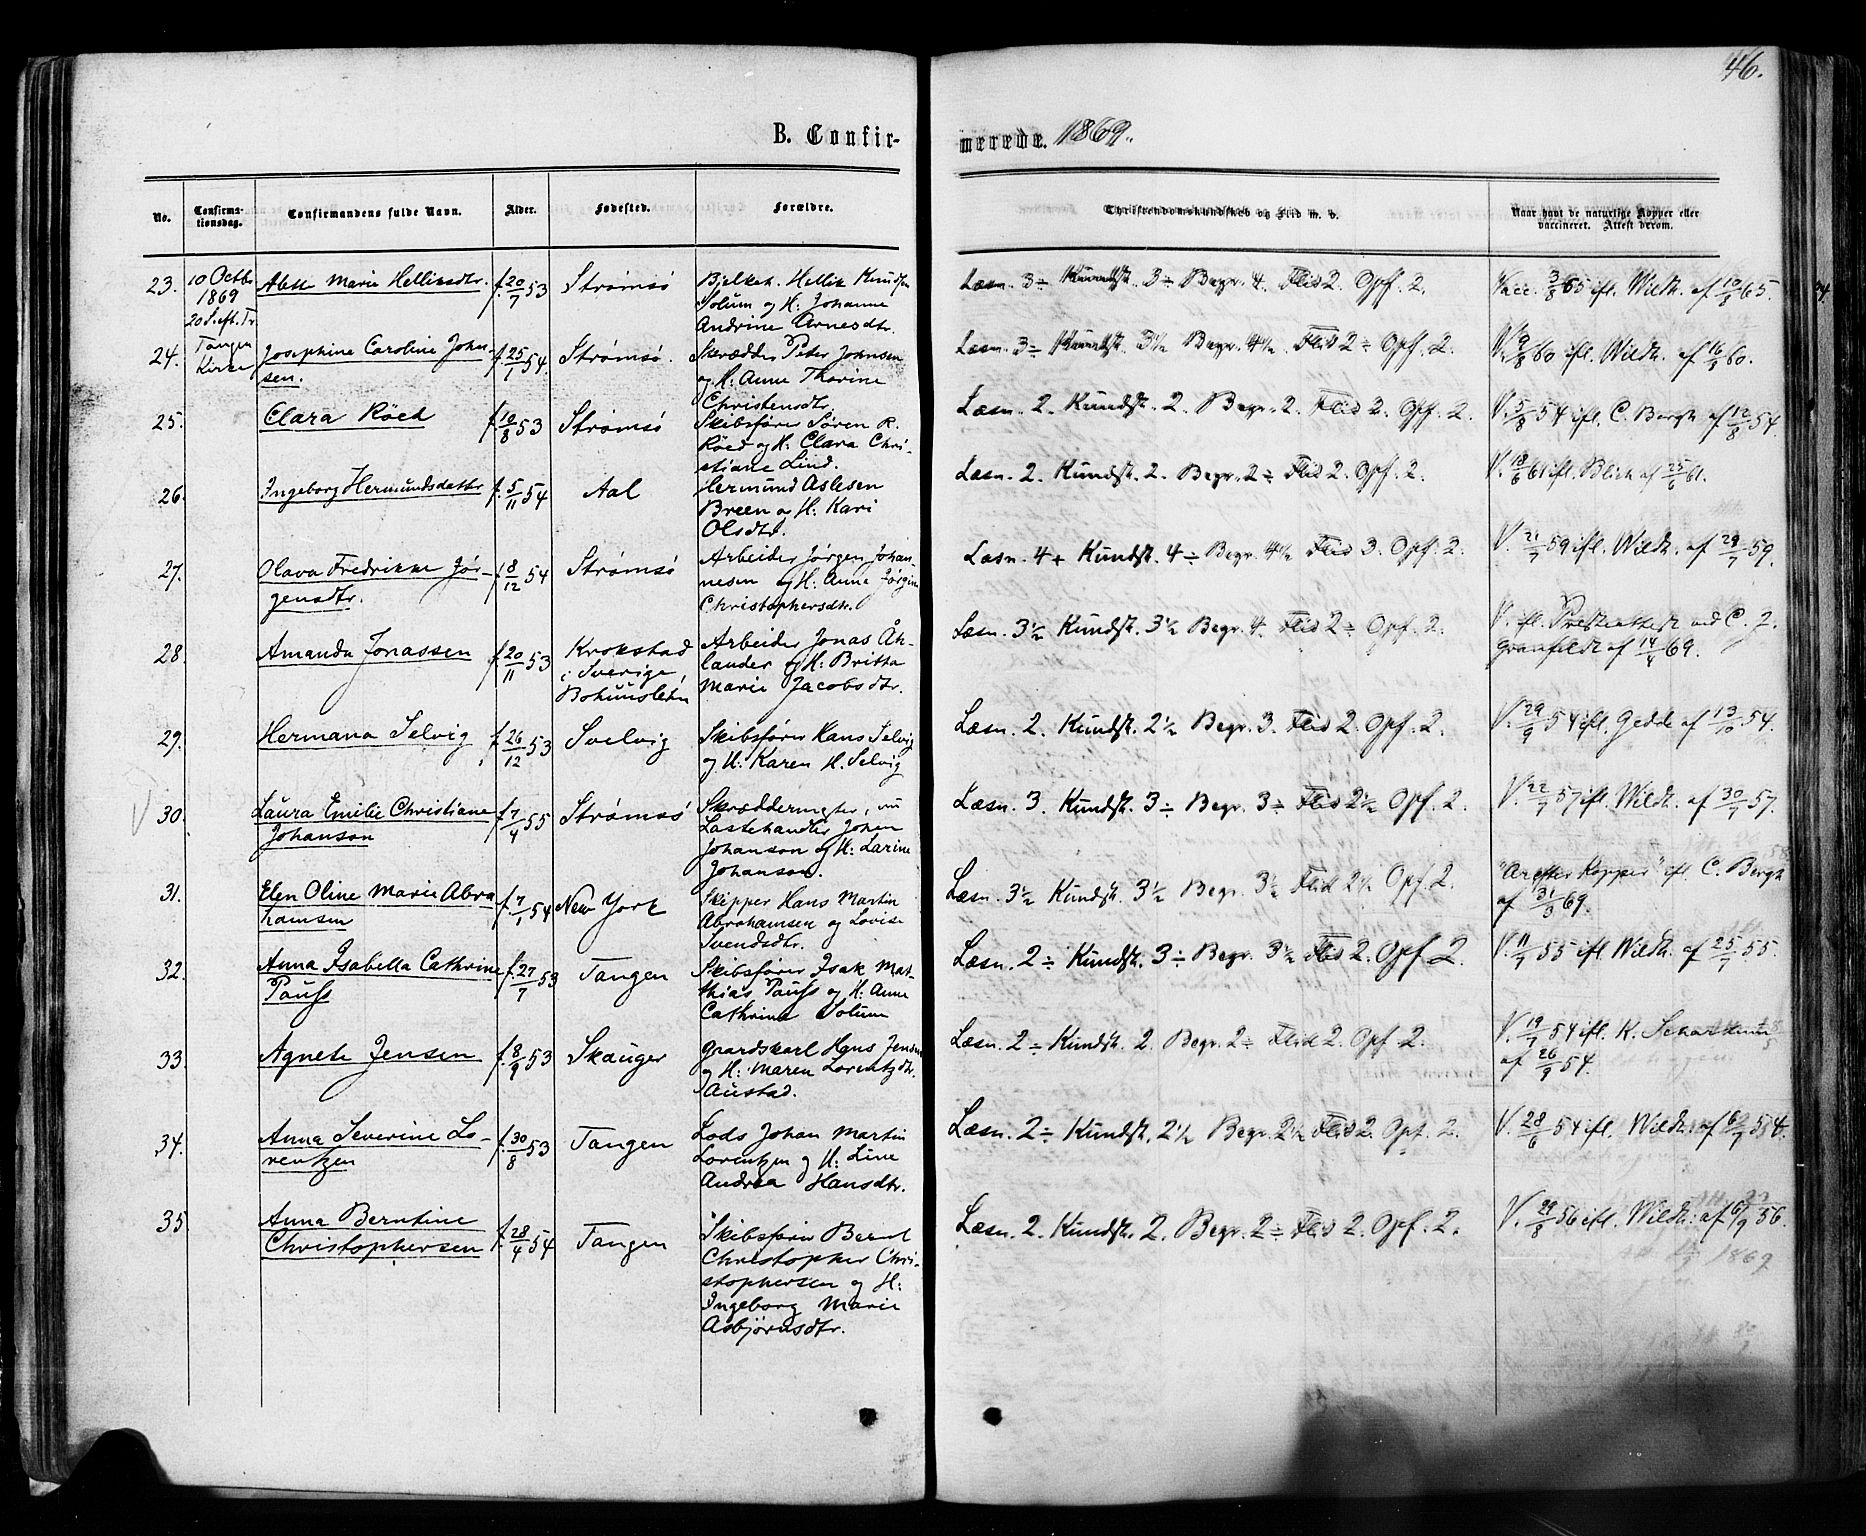 46.
B. Confir-
merede. 1869.
No.
Confirma-
tionsdag.
Confirmandens fulde Navn.
Alder.
Fødested.
Forældre.
Christendomskundskab og Flid m. v.
Naar havt de naturlige Kopper eller
vaccineret. Attest derom.
10 Octbr
1869
20 S. eft. Tr.
Tangen
Kirke
23. Alette Marie Helliksdtr. f. 20/7 53 Strømsø
Hellik Knudsen
Solum og H. Johanne
Andrine Arnesdtr.
Læsn. 3÷ Kundsk. 3÷ Begr. 4. Flid 2. Opf. 2.
Vacc. 3/8 65 ifl. Wildh. af 10/8 65.
24. Josephine Caroline John-
sen.
f. 25/1 54. Strømsø.
Skrædder Peter Johnsen
og H. Anne Thorine
Christensdtr.
Læsn. 3÷ Kundsk. 3½ Begr. 4½ Flid 2÷ Opf. 2.
V. 9/8 60 ifl. Wildh. af 16/8 60.
25. Clara Röed f. 10/8 53 Strømsø
Skibsfører Sören R.
Röed og H. Clara Chri-
stiane Lind.
Læsn. 2. Kundsk. 2. Begr. 2. Flid 2. Opf. 2.
V. 5/8 54 ifl. C. Bergh af 12/8 54.
26. Ingeborg Hermundsdatter f. 5/11 54 Aal
Hermund Aslesen
Breen og H. Kari
Olsdtr.
Læsn. 2. Kundsk. 2. Begr. 2÷ Flid 2. Opf. 2.
V. 18/6 61 ifl. Blich af 25/6 61.
27. Olava Fredrikke Jør-
gensdtr.
f. 8/12 54 Strømsø
Arbeider Jørgen Johan-
nesen og H. Anne Jørgine
Christophersdtr.
Læsn. 4+ Kundsk. 4÷ Begr. 4½ Flid 3. Opf. 2.
V. 21/7 59 ifl. Wildh. af 29/7 59.
28. Amanda Jonassen f. 20/11 53
Krokstad
i Sverige,
Bohuuslehn
Arbeider Jonas Åh-
lander og H. Britta
Marie Jacobsdtr.
Læsn. 3½ Kundsk. 3½ Begr. 4. Flid 2÷ Opf. 2.
V. ifl. Presteattest ved C. J.
Granfeldt af 14/4 69.
29. Hermana Selvig f. 26/12 53 Svelvig
Skibsfører Hans Selvig
og H. Karen H. Selvig
Læsn. 2. Kundsk. 2½ Begr. 3. Flid 2. Opf. 2.
V. 29/9 54 ifl. Gedde af 13/10 54.
V 30. Laura Emilie Christiane
Johanson
f. 7/4 55 Strømsø
Skræddermester, nu
Lastehandler Johan
Johanson og H. Larine
Johanson.
Læsn. 3. Kundsk. 3÷ Begr. 3÷ Flid 2½ Opf. 2.
V. 22/7 57 ifl. Wildh. af 30/7 57.
31. Elen Oline Marie Abra
hamsen
f. 7/1 54 New York
Skipper Hans Martin
Abrahamsen og Lovise
Svendsdtr.
Læsn. 3½ Kundsk. 3½ Begr. 3½ Flid 2½. Opf. 2.
Kopper" ifl. C. Bergh
af 31/3 69.
32. Anna Isabella Cathrine
Pauss
f. 27/7 53 Tangen
Skibsfører Isak Mat-
thias Pauss og H. Anne
Cathrine Solum
Læsn. 2÷ Kundsk. 3÷ Begr. 3½ Flid 2. Opf. 2.
V. 11/7 55 ifl. Wildh. af 25/7 55.
33. Agnete Jensen f. 8/9 53 Skauger
Gaardskarl Hans Jensen
og H. Maren Lorentzdtr.
Austad.
Læsn. 2÷ Kundsk. 2. Begr. 2÷ Flid 2. Opf. 2.
V. 19/7 54 ifl. K.
af 26/9 54.
34. Anna Severine Lo-
rentzen
f. 30/8 53 Tangen
Lods Johan Martin
Lorentzen og H. Line
Andrea Hansdtr.
Læsn. 2÷ Kundsk. 2½ Begr. 2½ Flid 2. Opf. 2.
V. 28/6 54 ifl. Wildh. af 6/7 54.
35. Anna Berntine
Christophersen
f. 28/4 54 Tangen
Skibsfører Bernt
Christopher Chri-
stophersen og H.
Ingeborg Marie
Asbjørnsdtr.
Læsn. 2. Kundsk. 2. Begr. 2÷ Flid 2. Opf. 2.
V. 29/8 56 ifl. Wildh. af 6/9 56.